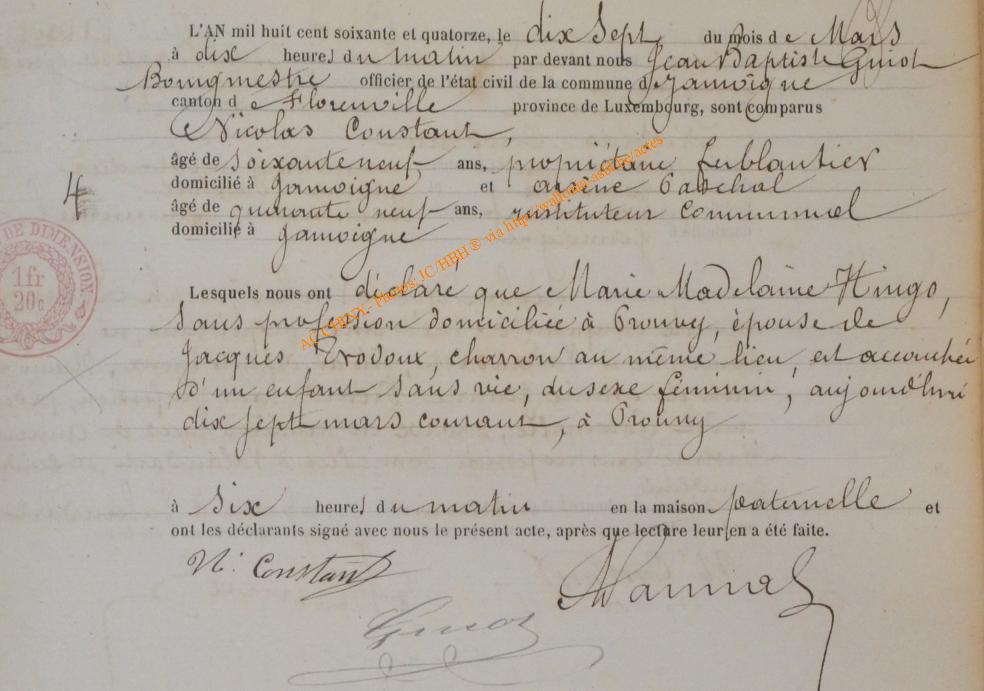 L'AN mil huit cent soixante et quatorze, le dix sept du mois de Mars
à dix heures du matin par devant nous Jean Baptiste Guiot
Bourgmestre officier de l'état civil de la commune de Jamoigne
canton de Florenville province de Luxembourg, sont comparus
Nicolas Constant,
âgé de soixante neuf ans, propriétaire ferblantier
domicilié à Jamoigne et arsène Paschal
4
âgé de quarante neuf ans, instituteur communal
domicilié à Jamoigne
DE DIMENSION
1fr
20c
Lesquels nous ont déclaré que Marie Madelaine Hingo,
sans profession domiciliée à Prouvy, épouse de
Jacques, charron au même lieu, est accouchée
d'un enfant sans vie, du sexe féminin, aujourd'hui
dix sept mars courant, à Prouvy
à six heures du matin en la maison paternelle et
ont les déclarants signé avec nous le présent acte, après que lecture leur en a été faite.
N. Constant
Guiot